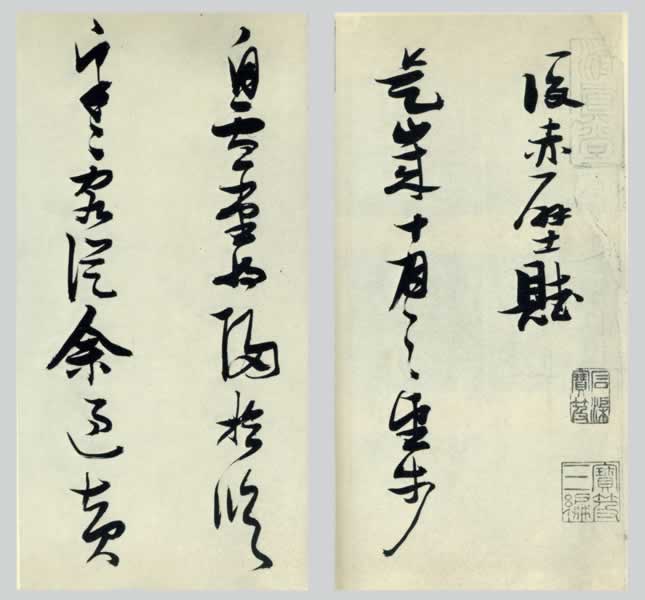 後赤壁賦
是歲十月之望步
自雪堂將歸於臨
皐二客從余過黃
石渠寶笈
寶笈三編